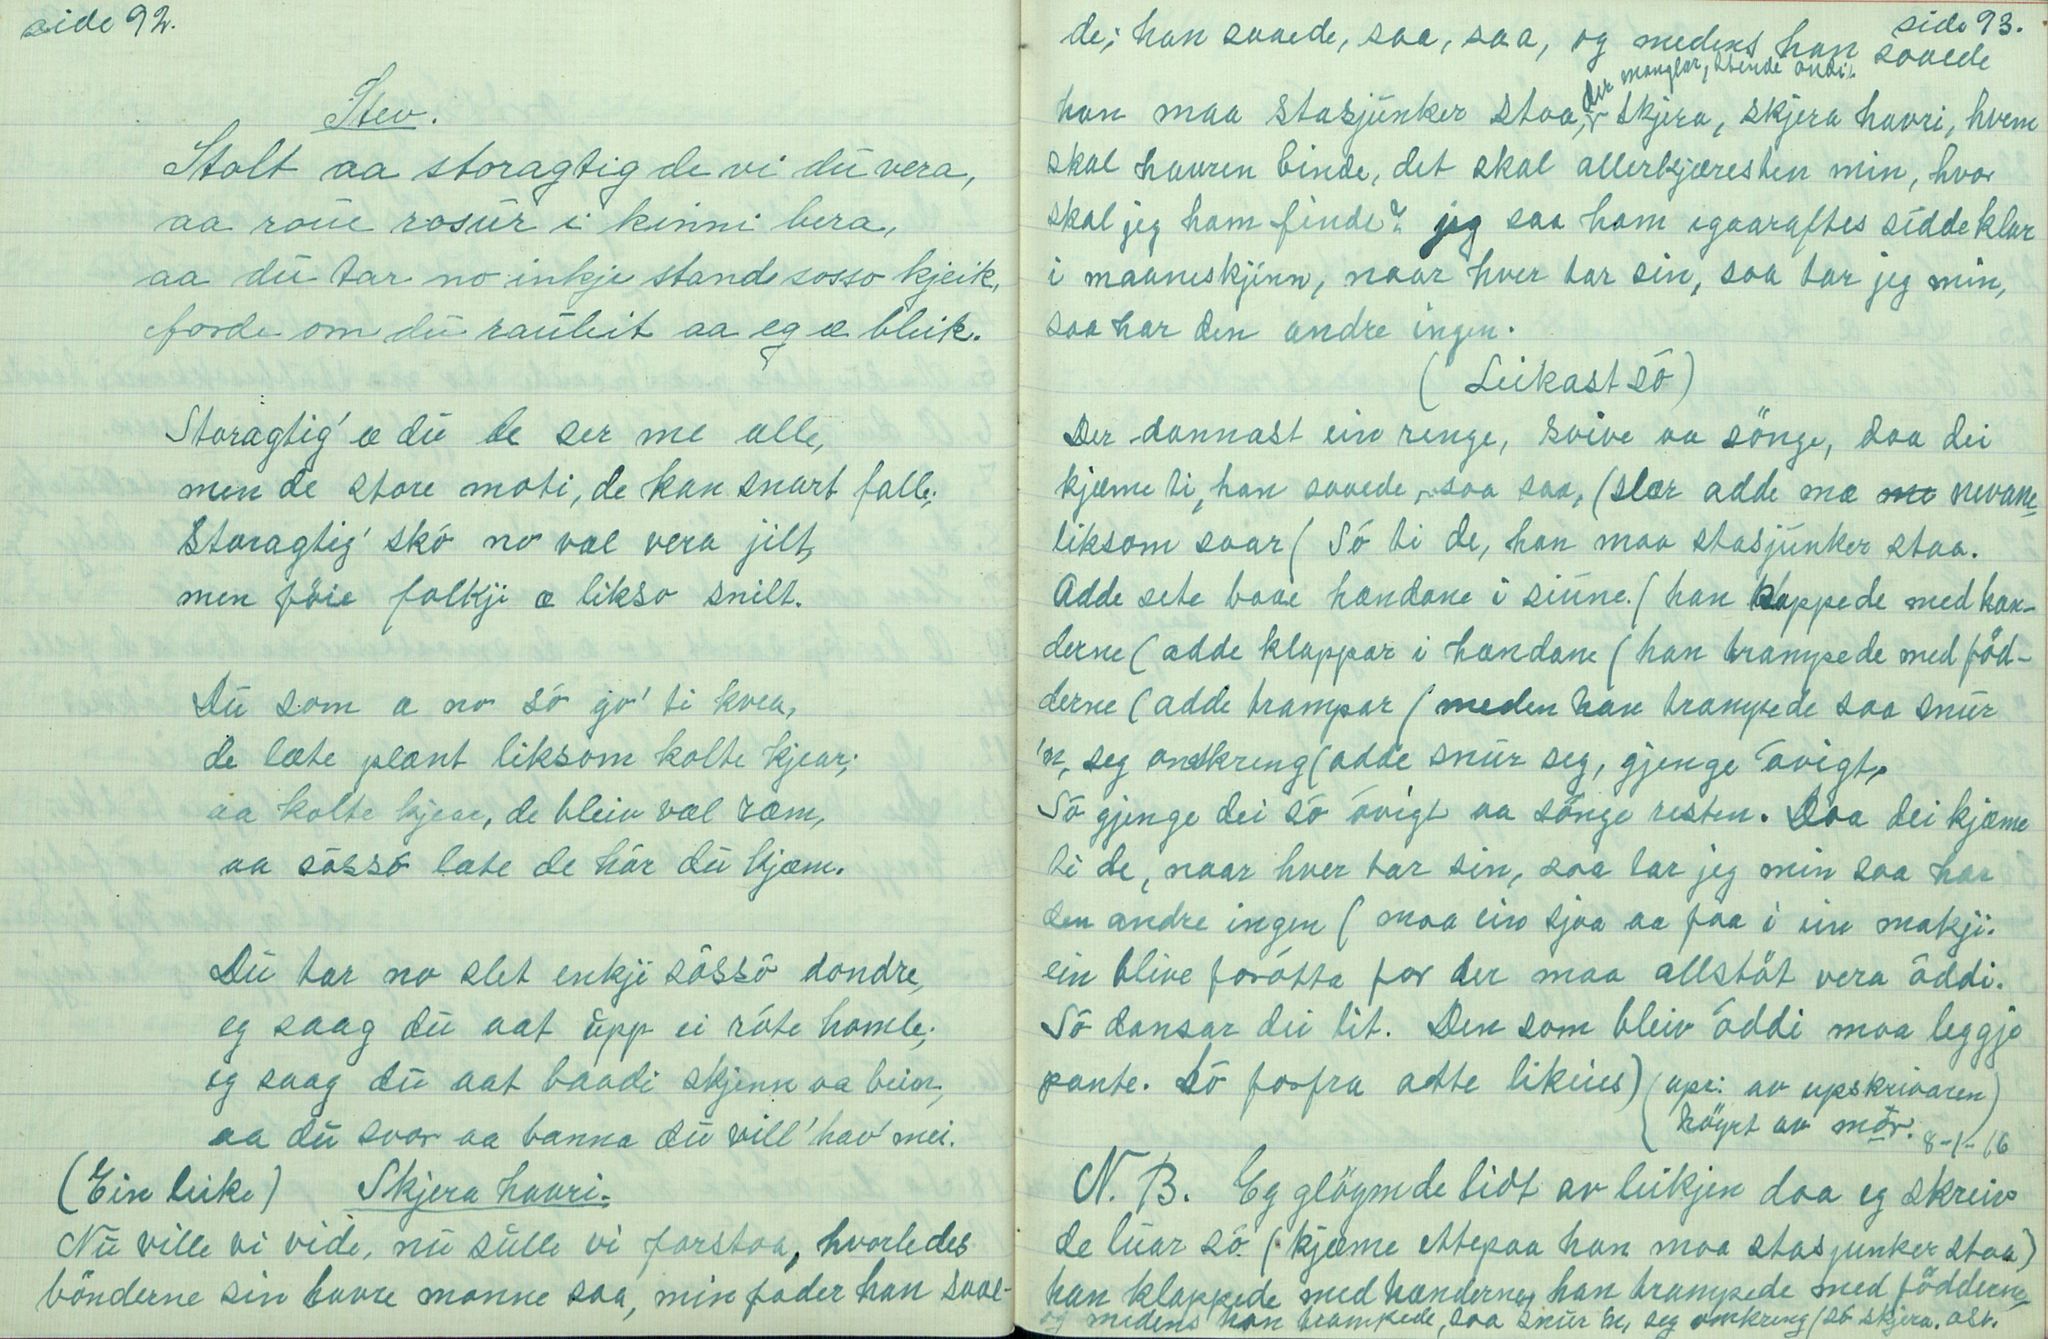 side 92.
Stev.
Stolt aa storagtig de vi du vera,
aa roue rosur i kinni bera,
aa du tar no inkje stande sosso kjeik,
forde om du rauleit aa eg æ bleik.
Storagtig' æ du de ser me alle,
men de store moti, de kan snart falle;
Storagtig' skó no væl vera jilt,
men föie folkji æ likso snilt.
Du som æ no só go' ti kvea,
de læte plent liksom kolte kjear;
aa kolte kjear, de bleiv væl ræm,
aa sóssó læte de hár du kjæm.
Du tar no slet enkji sóssó dondre,
eg saag du aat upp ei róte homle;
eg saag du aat baadi skjenn aa bein,
aa du svor aa banna du vill' hav' mei.
(Ein leike) Skjera havri.
Nu ville vi vide, nu sulle vi forstaa, hvorledes
bönderne sin havre monne saa, min fader han saae-
side 93.
de; han saaede, saa, saa, og medens han saaede
der manglar, stende ondi.
han maa stasjunker staa, skjera, skjera havri, hvem
skal havren binde, det skal allerkjæresten min, hvor
skal jeg ham finde? jeg saa ham igaaraftes sidde klar
i maaneskjinn, naar hver tar sin, saa tar jeg min,
saa har den andre ingen.
(Leikast só)
Der dannast ein renge, svive aa sönge, daa dei
kjæme ti, han saaede, saa saa, (slær adde mæ nevane
liksom saar (Só ti de, han maa stasjunker staa.
Adde sete baae hændane i siune. (han klappede med hæn-
derne (adde klappar i hændane (han trampede med föd-
derne (adde trampar (meden han trampede saa snur
'n, seg omkring (adde snur seg, gjenge óvigt,
Só gjenge dei só óvigt aa sönge resten. Daa dei kjæme
ti de, naar hver tar sin, saa tar jeg min saa har
den andre ingen (maa ein sjaa aa faa i ein makji.
ein blive forótta for der maa allstöt vera öddi.
Só dansar dei lit. Den som bleiv óddi maa leggje
pante. Só forfra atte likeins) (upr: av upskrivaren)
(höyrt av mór. 8-1-16
N. B. Eg glöymde lidt av leikjen daa eg skreiv
de luar só (kjæme ettepaa han maa stasjunker staa)
han klappede med hænderne, han trampede med födderne,
og medens han trampede, saa snur 'n, seg omkring (só skjera. osv.